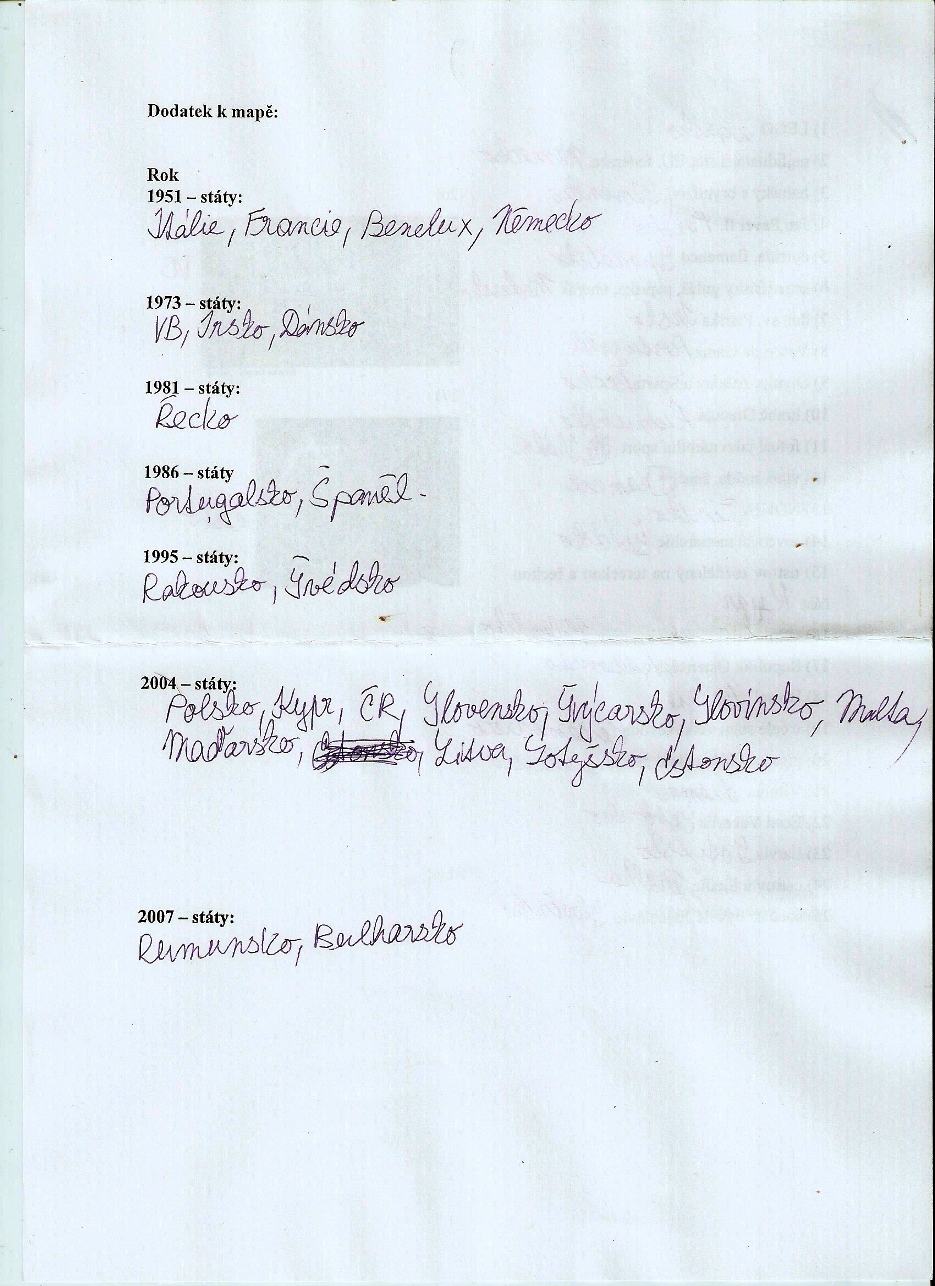 Dodatek k mapě:
Rok
1951 – státy:
Itálie, Francie, Benelux, Německo
1973 – státy:
VB, Irsko, Dánsko
1981 – státy:
Řecko
1986 – státy
Portugalsko, Španěl.
1995 – státy:
Rakousko, Švédsko
2004 – státy:
Polsko, Kypr, ČR, Slovensko, Švýcarsko, Slovinsko, Malta,
Maďarsko, Litva, Lotyšsko, Estonsko
2007 – státy:
Rumunsko, Bulharsko